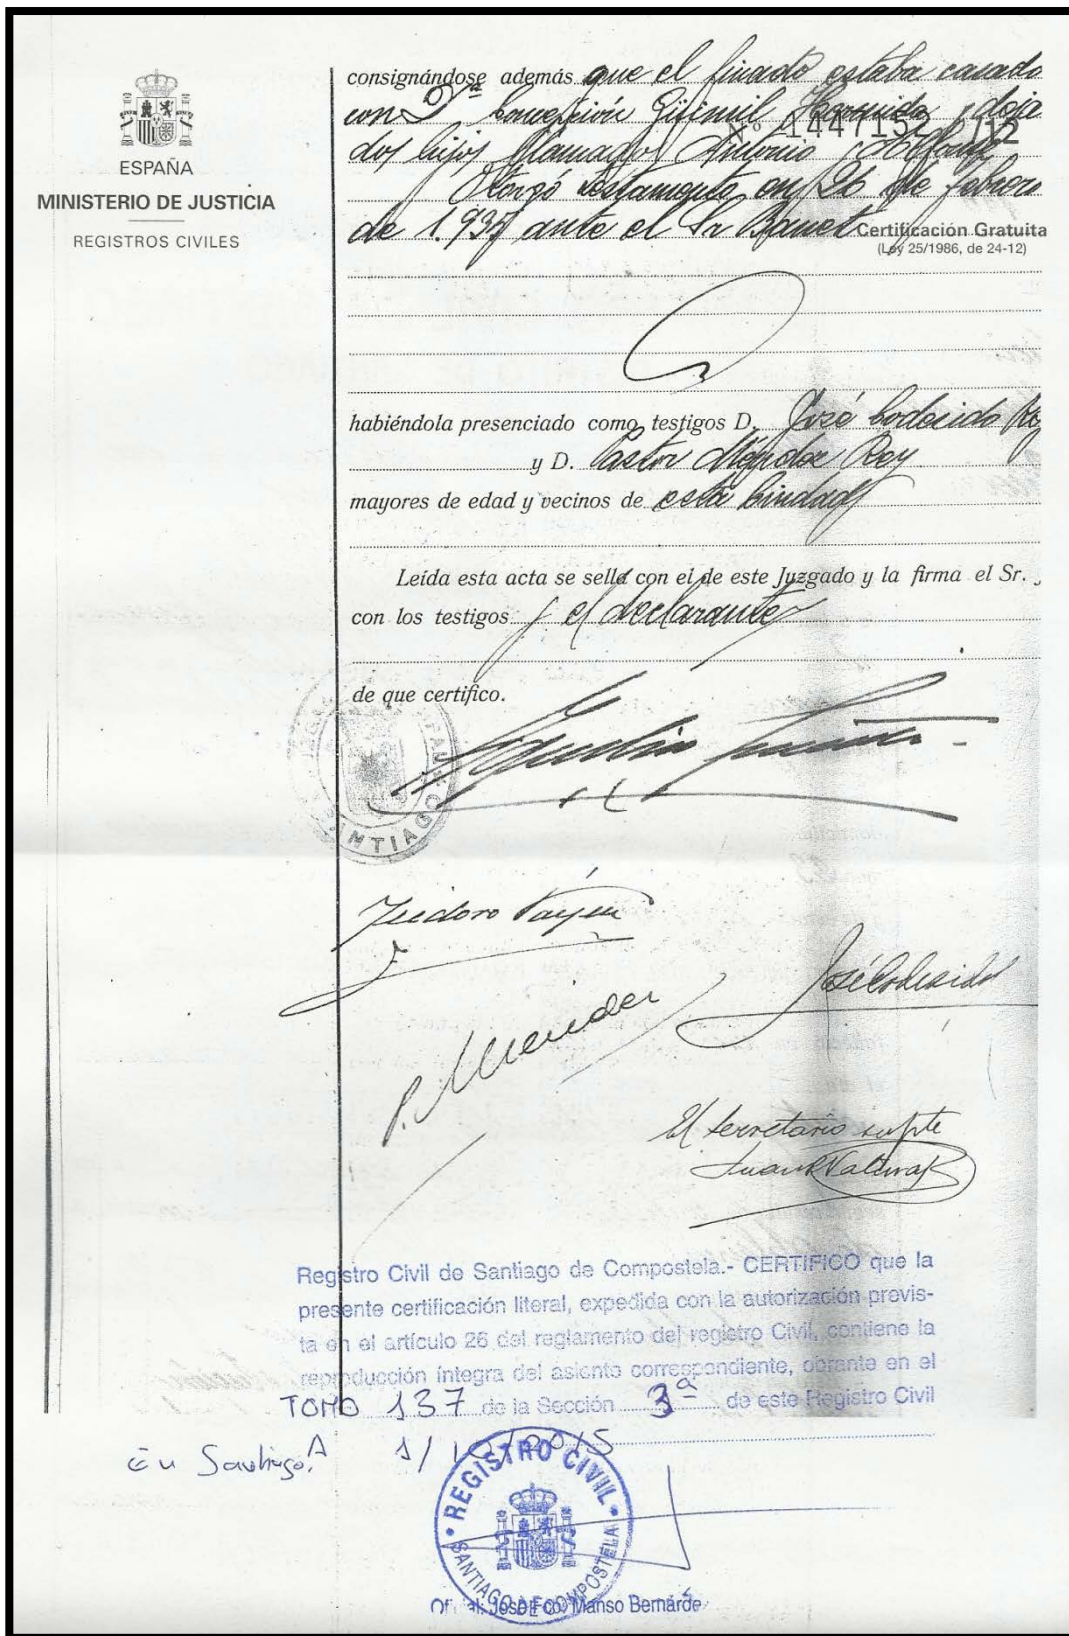 ESPAÑA
MINISTERIO DE JUSTICIA
REGISTROS CIVILES
consignándose además que el finado estaba casado
con Dª Concepción Hermida deja
Nº 1447152 /12
dos hijos llamados Antonio
Otorgó testamento en 26 de febrero
de 1.937 ante el Sr Banet
Certificación Gratuita
(Ley 25/1986, de 24-12)
habiéndola presenciado como testigos D. José Codesido
y D. Pastor Méndez Rey
mayores de edad y vecinos de esta Ciudad
Leída esta acta se sella con el de este Juzgado y la firma el Sr.
con los testigos y el declarante
de que certifico.
SANTIAGO
Isidoro
José Codesido
P. Mendez
El Secretario suplte
Juan
Registro Civil de Santiago de Compostela.- CERTIFICO que la
presente certificación literal, expedida con la autorización previs-
ta en el artículo 26 del reglamento del registro Civil, contiene la
reproducción íntegra del asiento correspondiente, obrante en el
TOMO 137 de la Sección 3ª de este Registro Civil
En Santiago, A 1/
REGISTRO CIVIL
SANTIAGO DE COMPOSTELA
Oficial: José Fco. Manso Bernárde